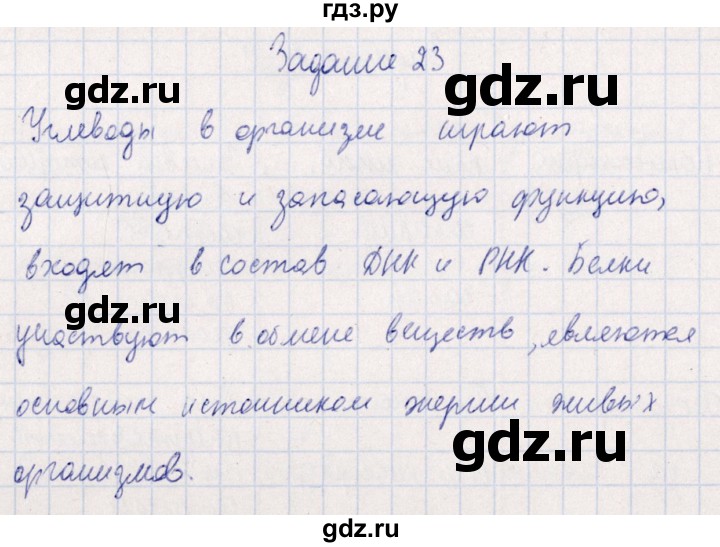 гдз.ру
Задание 23
gdz.ru gdz.ru
Углеводы в организме играют
защитную и запасающую функцию,
gdz.ru
входят в состав ДНК и РНК. Белки
gdz.ru
участвуют в обмене веществ, являются
основным источником энергии живых
gdz.ru
организмов.
gdz.ru
gdz.ru